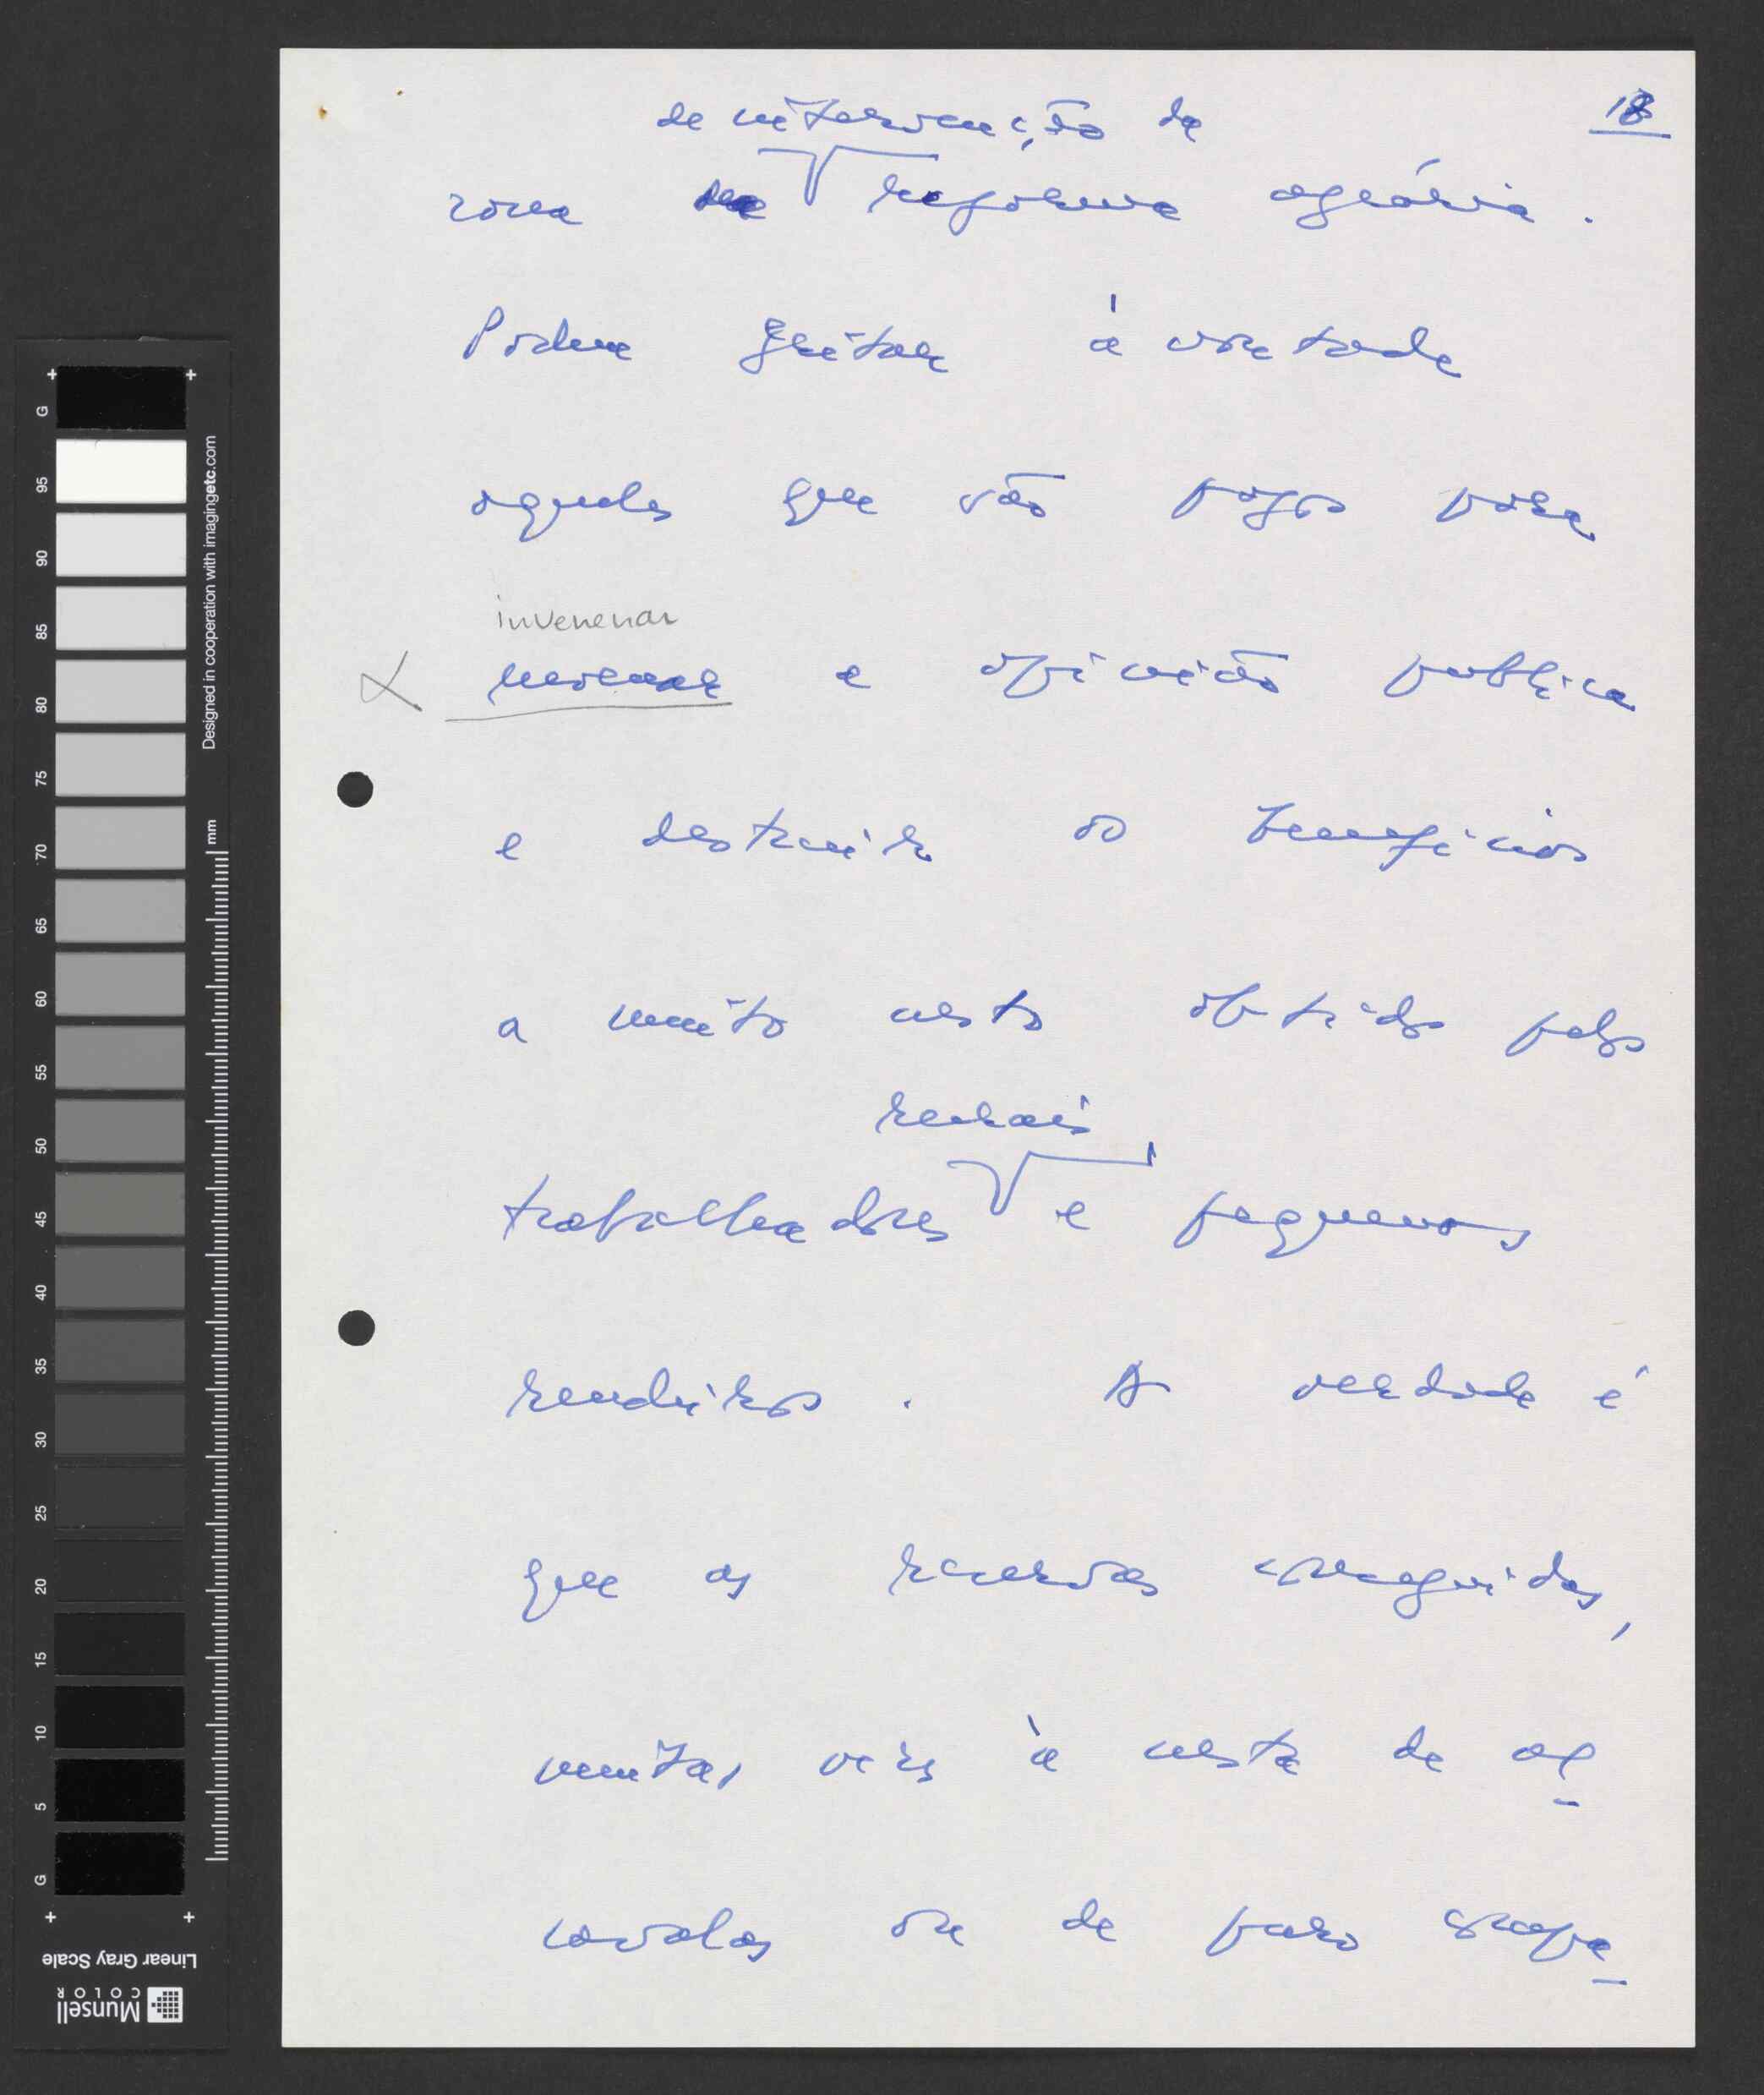 18
de intervenção da
zona da reforma agrária.
Podem gritar à vontade
aqueles que são pagos para
invenenar
a opinião publica
e destruir os beneficios
a muito custo obtidos pelos
rurais,
trabalhadores e pequenos
rendeiros. A verdade é
que as reservas conseguidas,
muitas vezes à custa de al-
cavalas ou de puro
G 95 90 85 80 75 70 65 60 55 50 45 40 35 30 25 20 15 10 5 G
Designed in cooperation with imagingetc.com
mm
Linear Gray Scale
Munsell
COLOR